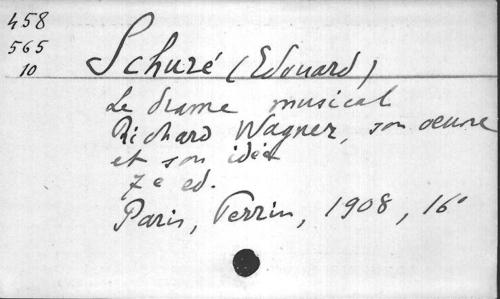 458
565
10
Schuré (Edouard)
Le drame musical
Richard Wagner, son œuvre
et son idée
7e ed.
Paris, Perrin, 1908, 16°